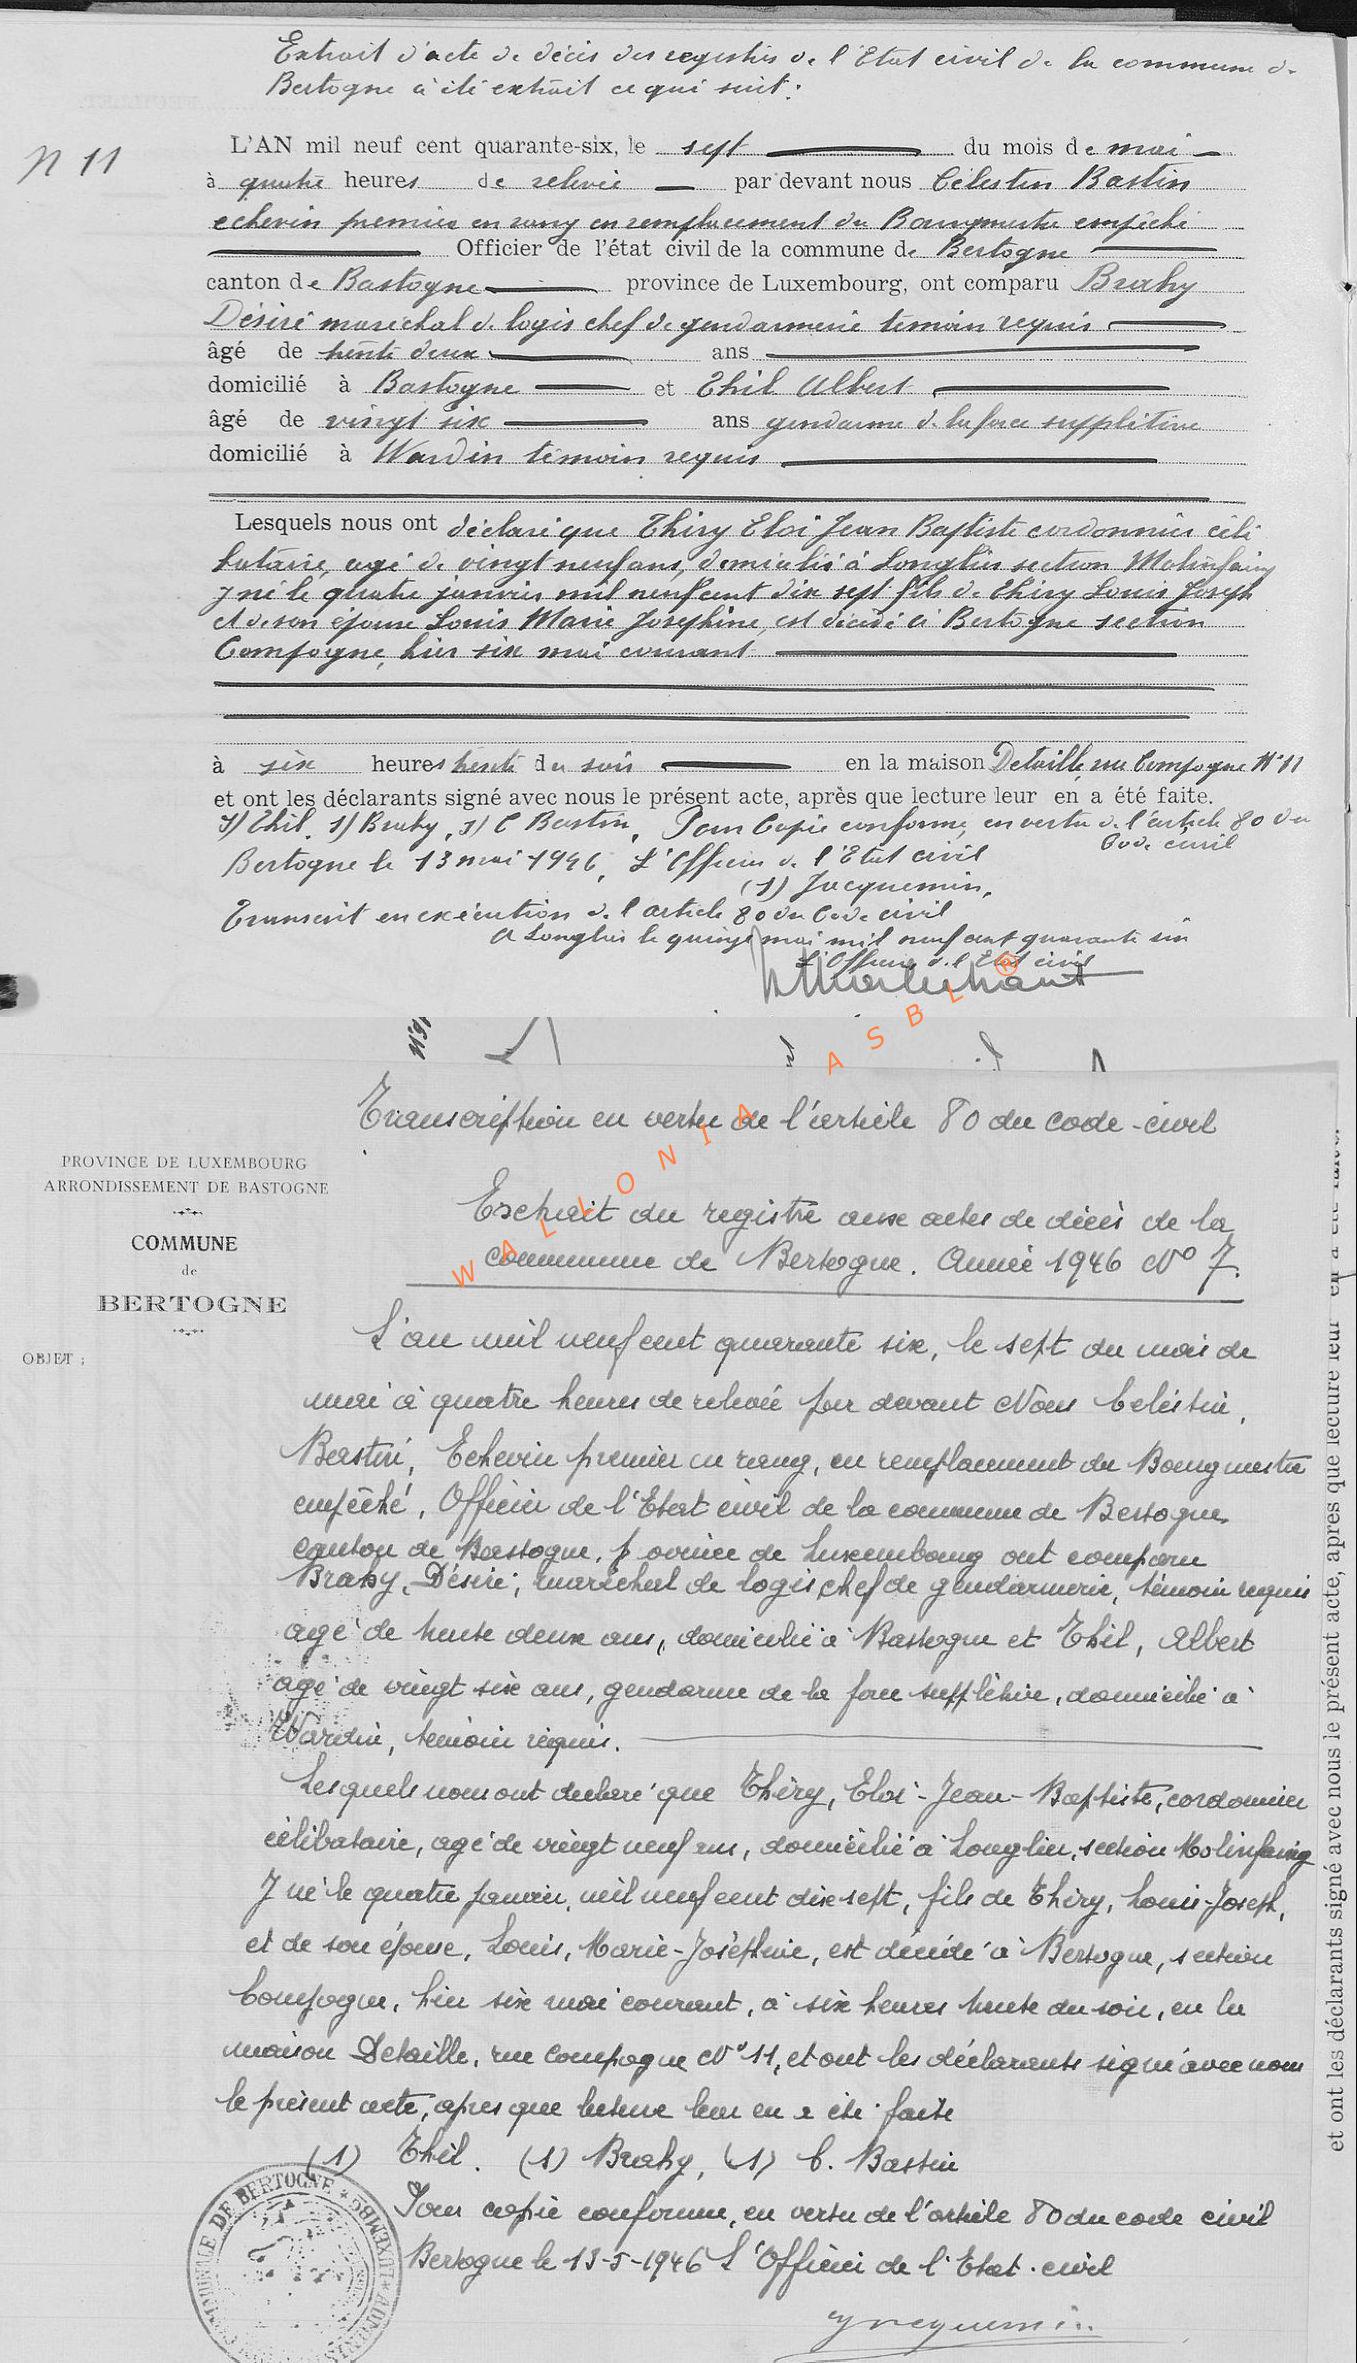 Extrait d'acte de décès des registres de l'Etat civil de la commune de
Bertogne à été extrait ce qui suit :
N 11
L'AN mil neuf cent quarante-six, le sept du mois de mai
à quatre heures de relevée par devant nous Célestin Bastin
echevin premier en rang en remplacement du Bourgmestre empêché
Officier de l'état civil de la commune de Bertogne
canton de Bastogne province de Luxembourg, ont comparu Brahy
Désiré maréchal de logis chef de gendarmerie témoin requis
âgé de trente deux ans
domicilié à Bastogne et Thil Albert
âgé de vingt six ans gendarme de la force supplétive
domicilié à Wardin témoin requis
Lesquels nous ont déclaré que Thiry Eloi Jean Baptiste cordonnier céli
bataire, agé de vingt neuf ans, domicilié à Longlier section Molinfaing
y né le quatre janvier mil neuf cent dix sept fils de Thiry Louis Joseph
et de son épouse Louis Marie Josephine, est décédé à Bertogne section
Compogne, hier six mai courant
à six heures trente du soir en la maison Detaille, rue Compogne N° 11
et ont les déclarants signé avec nous le présent acte, après que lecture leur en a été faite.
s) Thil. s) Brahy, s) C Bastin, Pour Copie conforme, en vertu de l'article 80 du
Code civil
Bertogne le 13 mai 1946, L'Officier de l'Etat civil
(s) Jacquemin,
Transcrit en exécution de l'article 80 du Code civil
A Longlier le quinze mai mil neuf cent quarante six
L'Officier de l'Etat civil
WALLONIA ASBL ®
Transcription en vertu de l'article 80 du code-civil
PROVINCE DE LUXEMBOURG
ARRONDISSEMENT DE BASTOGNE
COMMUNE
de
BERTOGNE
OBJET :
Extrait du registre aux actes de décès de la
commune de Bertogne. Année 1946 N° 7.
L'an mil neuf cent quarante six, le sept du mois de
mai à quatre heures de relevée par devant Nous Celéstin,
Bastin, Echevin premier en rang, en remplacement du Bourgmestre
empêché, Officier de l'Etat civil de la commune de Bertogne,
canton de Bastogne, province de Luxembourg ont comparu
Brahy, Désiré, maréchal de logis chef de gendarmerie, témoin requis
agé de trente deux ans, domicilié à Bastogne et Thil, Albert
agé de vingt six ans, gendarme de la force supplétive, domicilié à
Wardin, témoin requis.
Lesquels nous ont declaré que Thiry, Eloi-Jean-Baptiste, cordonnier
célibataire, agé de vingt neuf ans, domicilié à Longlier, section Molinfaing
y né le quatre janvier, mil neuf cent dix sept, fils de Thiry, Louis-Joseph,
et de son épouse, Louis, Marie-Joséphine, est décédé à Bertogne, section
Compogne, hier six mai courant, à six heures trente du soir, en la
maison Detaille, rue Compogne N° 11, et ont les déclarants signé avec nous
le présent acte, apres que lecture leur en a été faite
(1) Thil. (1) Brahy, (1) C. Bastin
Pour copie conforme, en vertu de l'article 80 du code civil
Bertogne le 13-5-1946 L'Officier de l'Etat-civil
Jacquemin
DE BERTOGNE
et ont les déclarants signé avec nous le présent acte, après que lecture leur en a été faite.